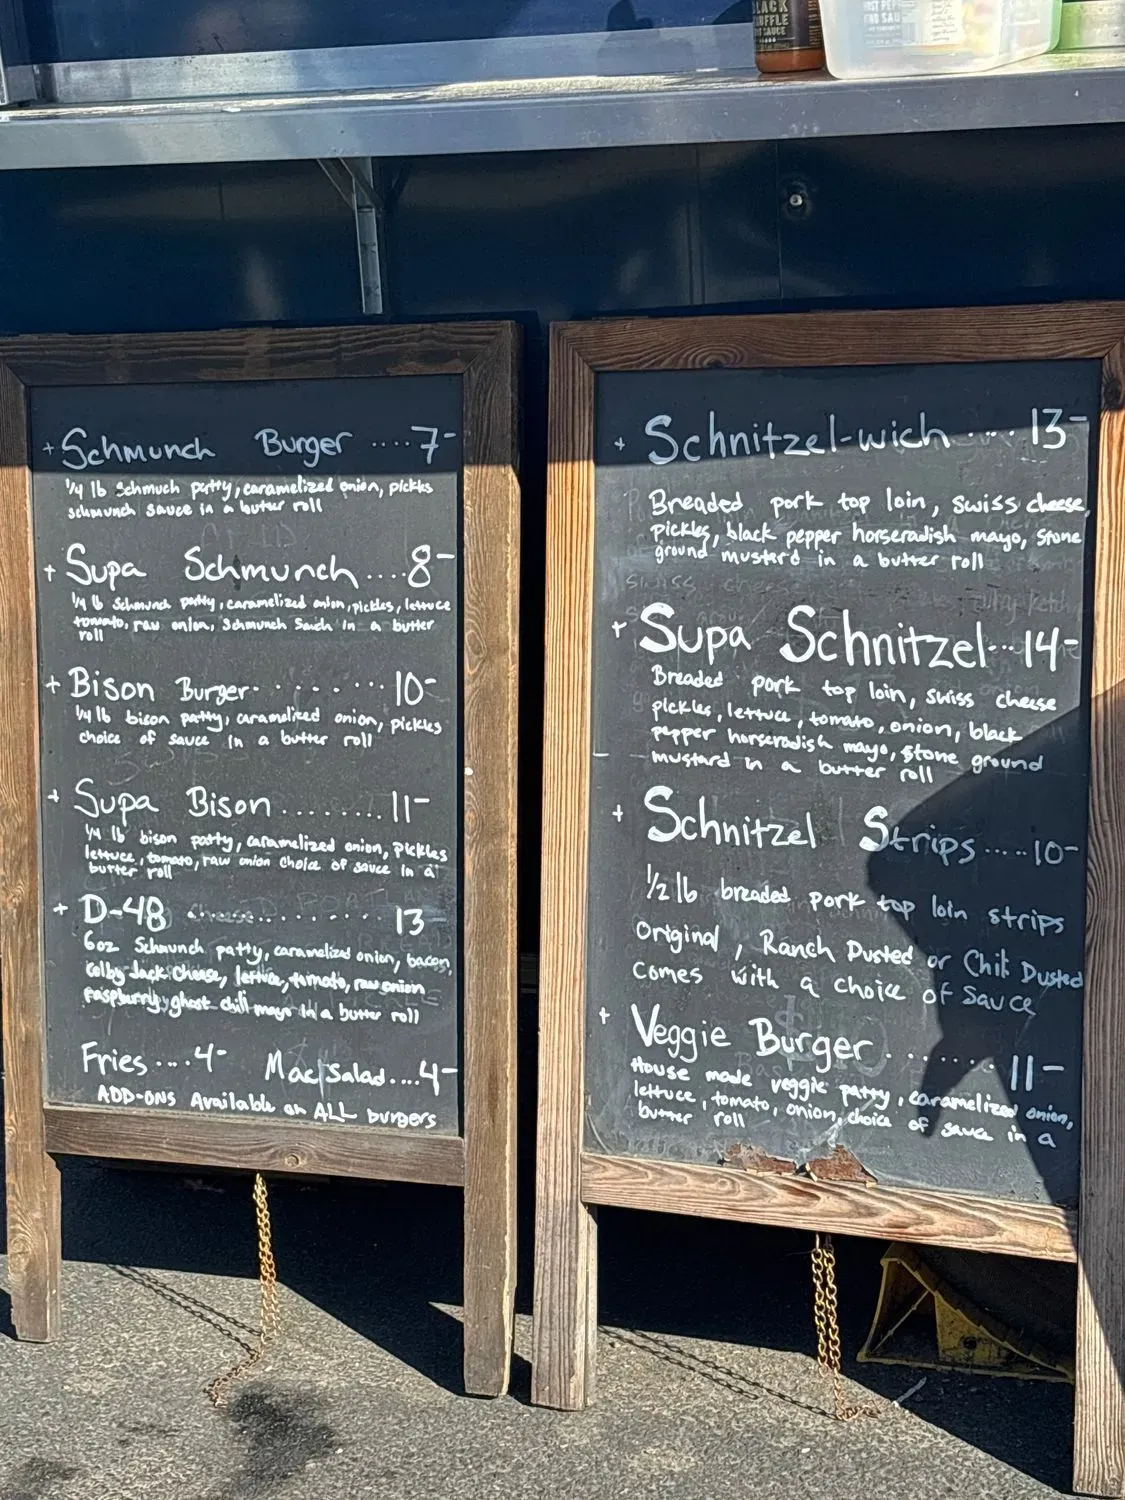 BLACK
TRUFFLE
HOT SAUCE
+ Schmunch Burger ....7-
1/4 lb Schmuch patty, caramelized onion, pickles
schmunch sauce in a butter roll
+ Supa Schmunch....8-
1/4 lb Schmunch patty, caramelized onion, pickles, lettuce
tomato, raw onion, Schmunch Sauch in a butter
roll
+ Bison Burger........10-
1/4 lb bison patty, caramelized onion, pickles
choice of sauce in a butter roll
+ Supa Bison.........11-
1/4 lb bison patty, caramelized onion, pickles
lettuce, tomato, raw onion choice of sauce in a
butter roll
+ D-48 ........ 13
6oz Schmunch patty, caramelized onion, bacon,
Colby Jack Cheese, lettuce, tomato, raw onion
raspberry ghost chili mayo in a butter roll
Fries....4- Mac Salad....4-
ADD-ONS Available on ALL burgers
+ Schnitzel-wich .... 13-
Breaded pork top loin, swiss cheese,
pickles, black pepper horseradish mayo, stone
ground mustard in a butter roll
+ Supa Schnitzel...14-
Breaded pork top loin, swiss cheese
pickles, lettuce, tomato, onion, black
pepper horseradish mayo, stone ground
mustard in a butter roll
+ Schnitzel Strips.....10-
1/2 lb breaded pork top loin strips
Original, Ranch Dusted or Chili Dusted
comes with a choice of Sauce
+ Veggie Burger.......11-
House made veggie patty, caramelized onion,
lettuce, tomato, onion, choice of sauce in a
butter roll